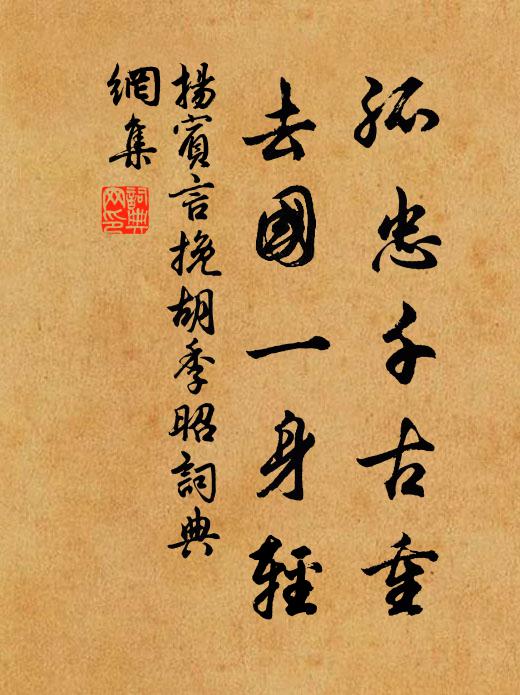 孤忠千古重
去國一身輕
揚賓言挽胡季昭詞典
網集
詞典
网印